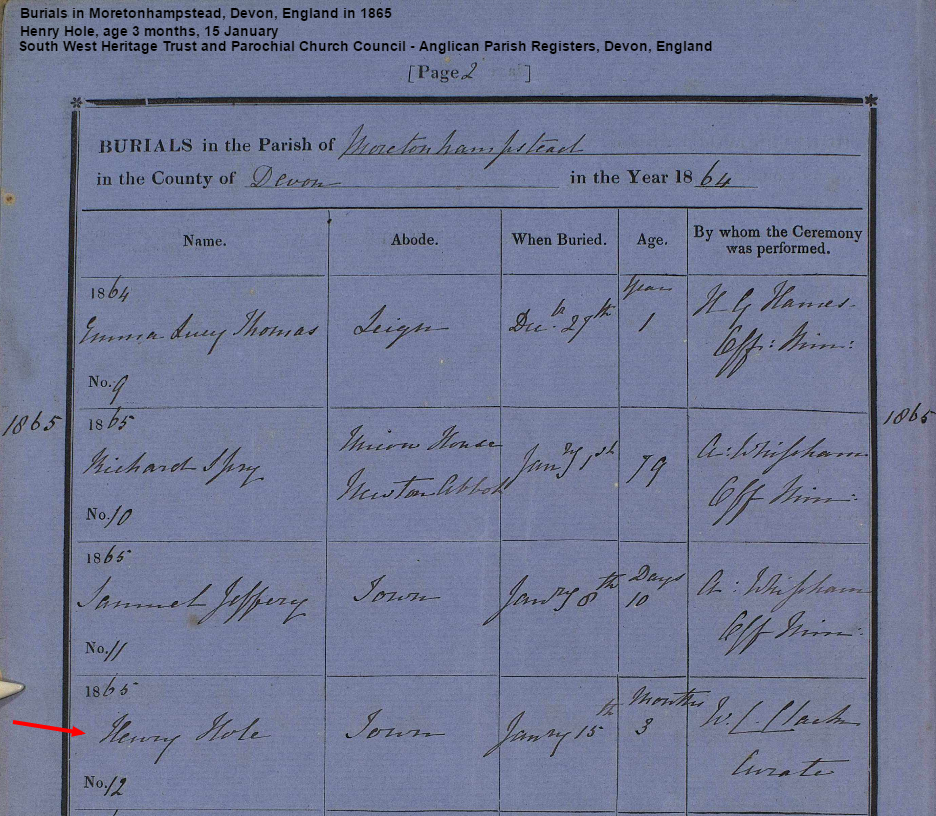 Burials in Moretonhampstead, Devon, England in 1865
Henry Hole, age 3 months, 15 January
South West Heritage Trust and Parochial Church Council - Anglican Parish Registers, Devon, England
[Page 2 ]
BURIALS in the Parish of Moretonhampstead
in the County of Devon in the Year 1864
Name. Abode. When Buried. Age. By whom the Ceremony was performed.
1864
Emma Lucy Thomas Leign Dec. 29th Years 1 H G Hames
Off: Min:
No. 9
1865 1865 1865
Richard Spry Union House Janry 1st 79 A: Whipham
Newton Abbot Off Min:
No. 10
1865
Samuel Jeffery Town Janry 8th Days 10 A: Whipham
Off Min:
No. 11
1865
Henry Hole Town Janry 15th Months 3 W. C. Clack
Curate
No. 12